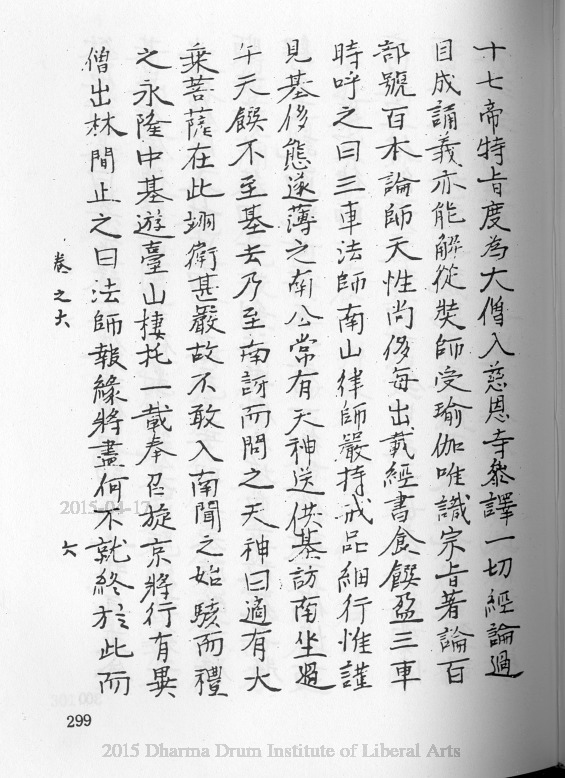 十七帝特旨度為大僧入慈恩寺叅譯一切經論過
目成誦義亦能解從奘師受瑜伽唯識宗旨著論百
部號百本論師天性尚侈每出載經書食饌盈三車
時呼之曰三車法師南山律師嚴持戒品細行惟謹
見基侈態遂薄之南公常有天神送供基訪南坐過
午天饌不至基去乃至南訝而問之天神曰適有大
乘菩薩在此翊衛甚嚴故不敢入南聞之始駭而禮
之永隆中基遊臺山棲托一載奉召旋京將行有異
僧出林間止之曰法師報緣將盡何不就終於此而
卷之六
六
299
2015-04-17
2015 Dharma Drum Institute of Liberal Arts